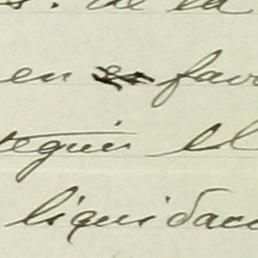 s. de la
en favo
tegui el
liquidaci